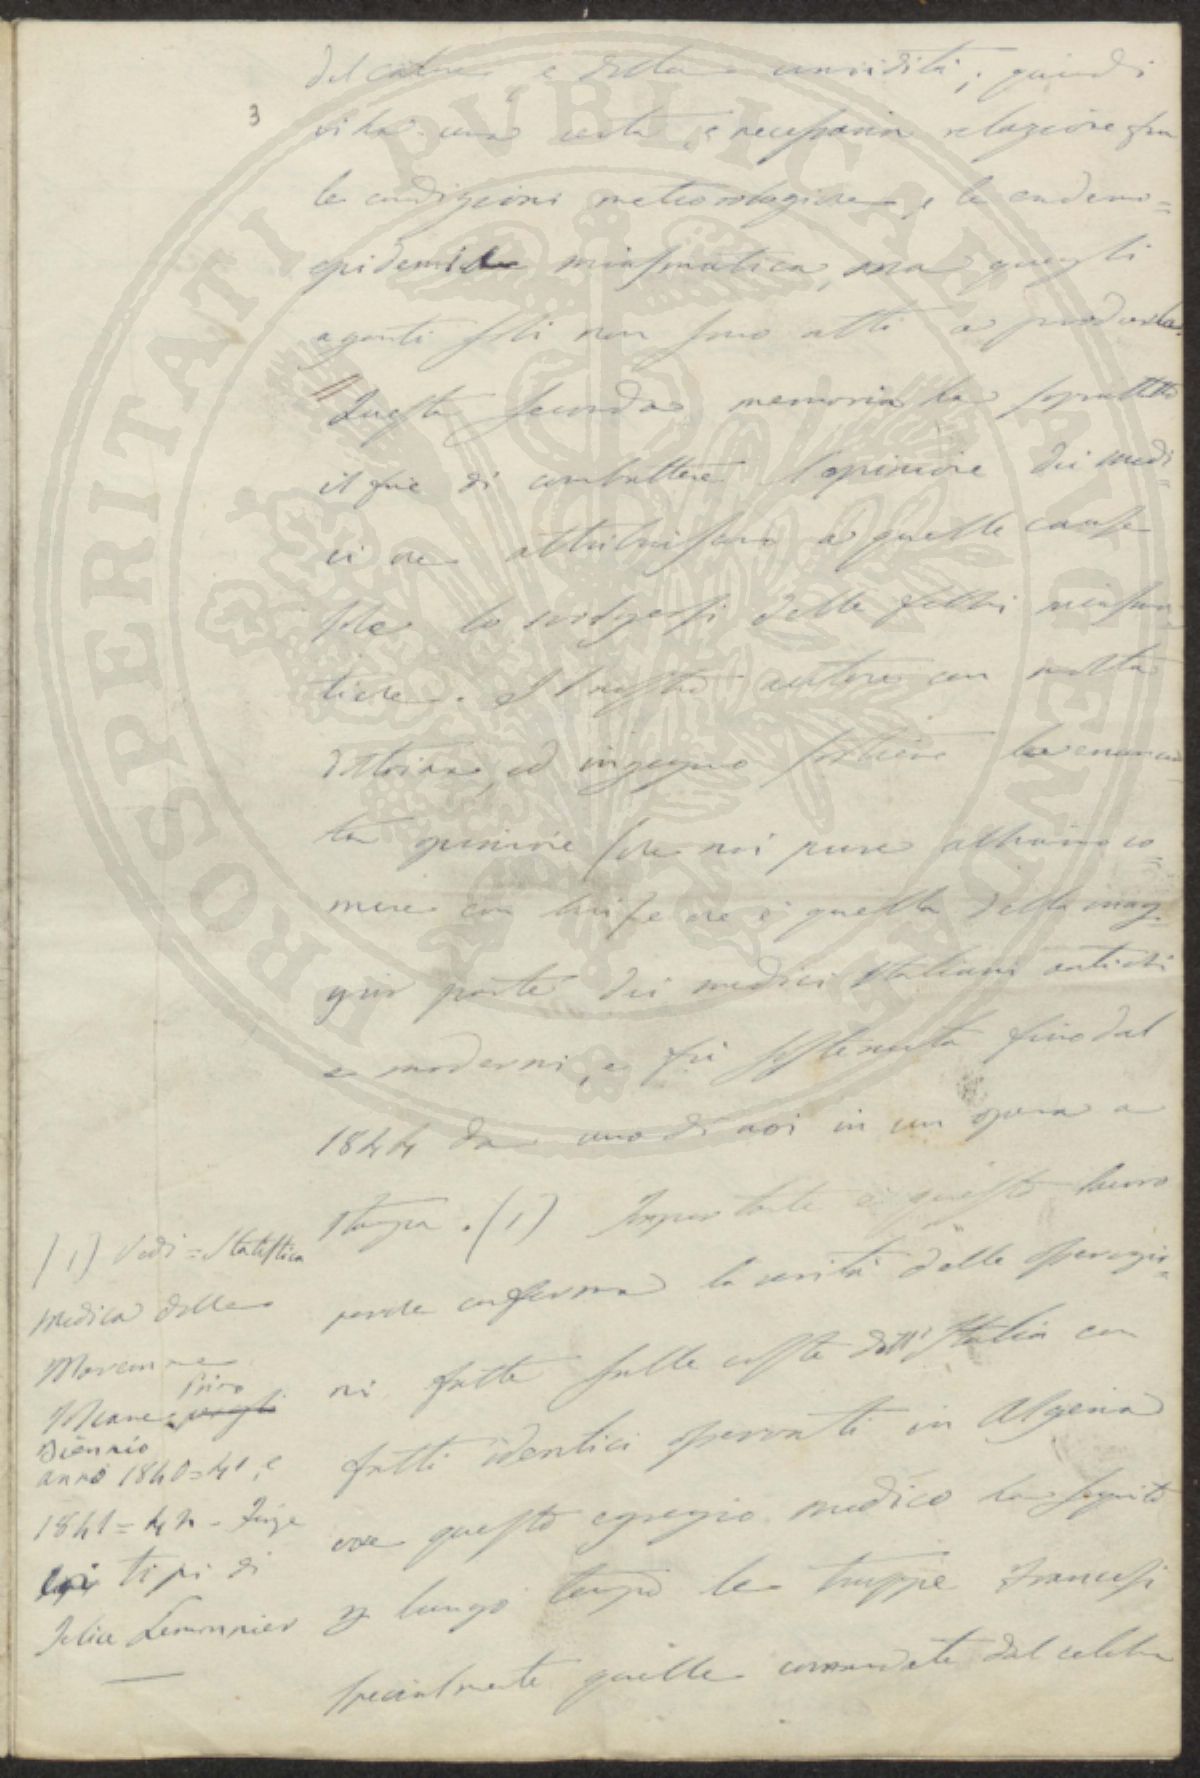 3
del calore e della umidità; quindi
vi ha una certa, e necessaria relazione fra
le condizioni meteorologiche, e le endemo=
epidemie miasmatica, ma quegli
agenti soli non sono atti a produrla.
Questa seconda memoria ha soprattutto
il fine di combattere l'opinione dei medi=
ci che attribuiscono a quelle cause
sole lo svolgersi delle febbri miasma=
tiche. Il nostro autore con molta
dottrina, ed ingegno sostiene la enuncia=
ta opinione che noi pure abbiamo co=
mune con lui, e che è quella della mag=
gior parte dei medici Italiani antichi
e moderni, e fu sostenuta fino dal
1844 da uno di noi in un opera a
stampa. (1) Importante è questo lavoro
perche conferma la verità delle osservazio=
ni fatte sulle coste dell'Italia con
fatti identici osservati in Algeria
ove questo egregio medico ha seguito
per lungo tempo le truppe francesi
specialmente quelle comandate dal celebre
(1) Vedi = Statistica
Medica delle
Maremme
Toscane primo
Biennio
anno 1840=41, e
1841=42 - Firenze
coi tipi di
Felice Lemonnier
PROSPERITATI PVBLICAE AVGENDAE